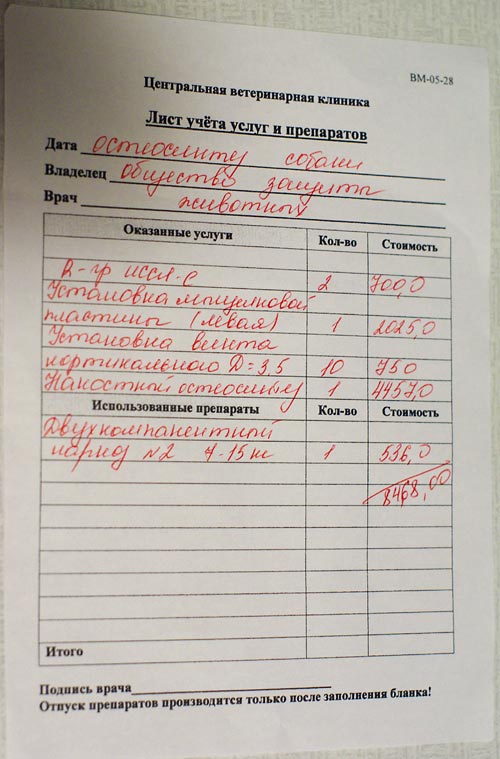 ВМ-05-28
Центральная ветеринарная клиника
Лист учёта услуг и препаратов
Дата остеосинтез собаки
Владелец общество защиты
Врач животных
Оказанные услуги Кол-во Стоимость
R-гр иссл-е 2 700,0
Установка мыщелковой
пластины (левая) 1 2025,0
Установка винта
кортикального D=3,5 10 750
Накостный остеосинтез 1 4457,0
Использованные препараты Кол-во Стоимость
Двухкомпанентный
наркоз N2 7-15 кг 1 536,0
8468,00
Итого
Подпись врача
Отпуск препаратов производится только после заполнения бланка!